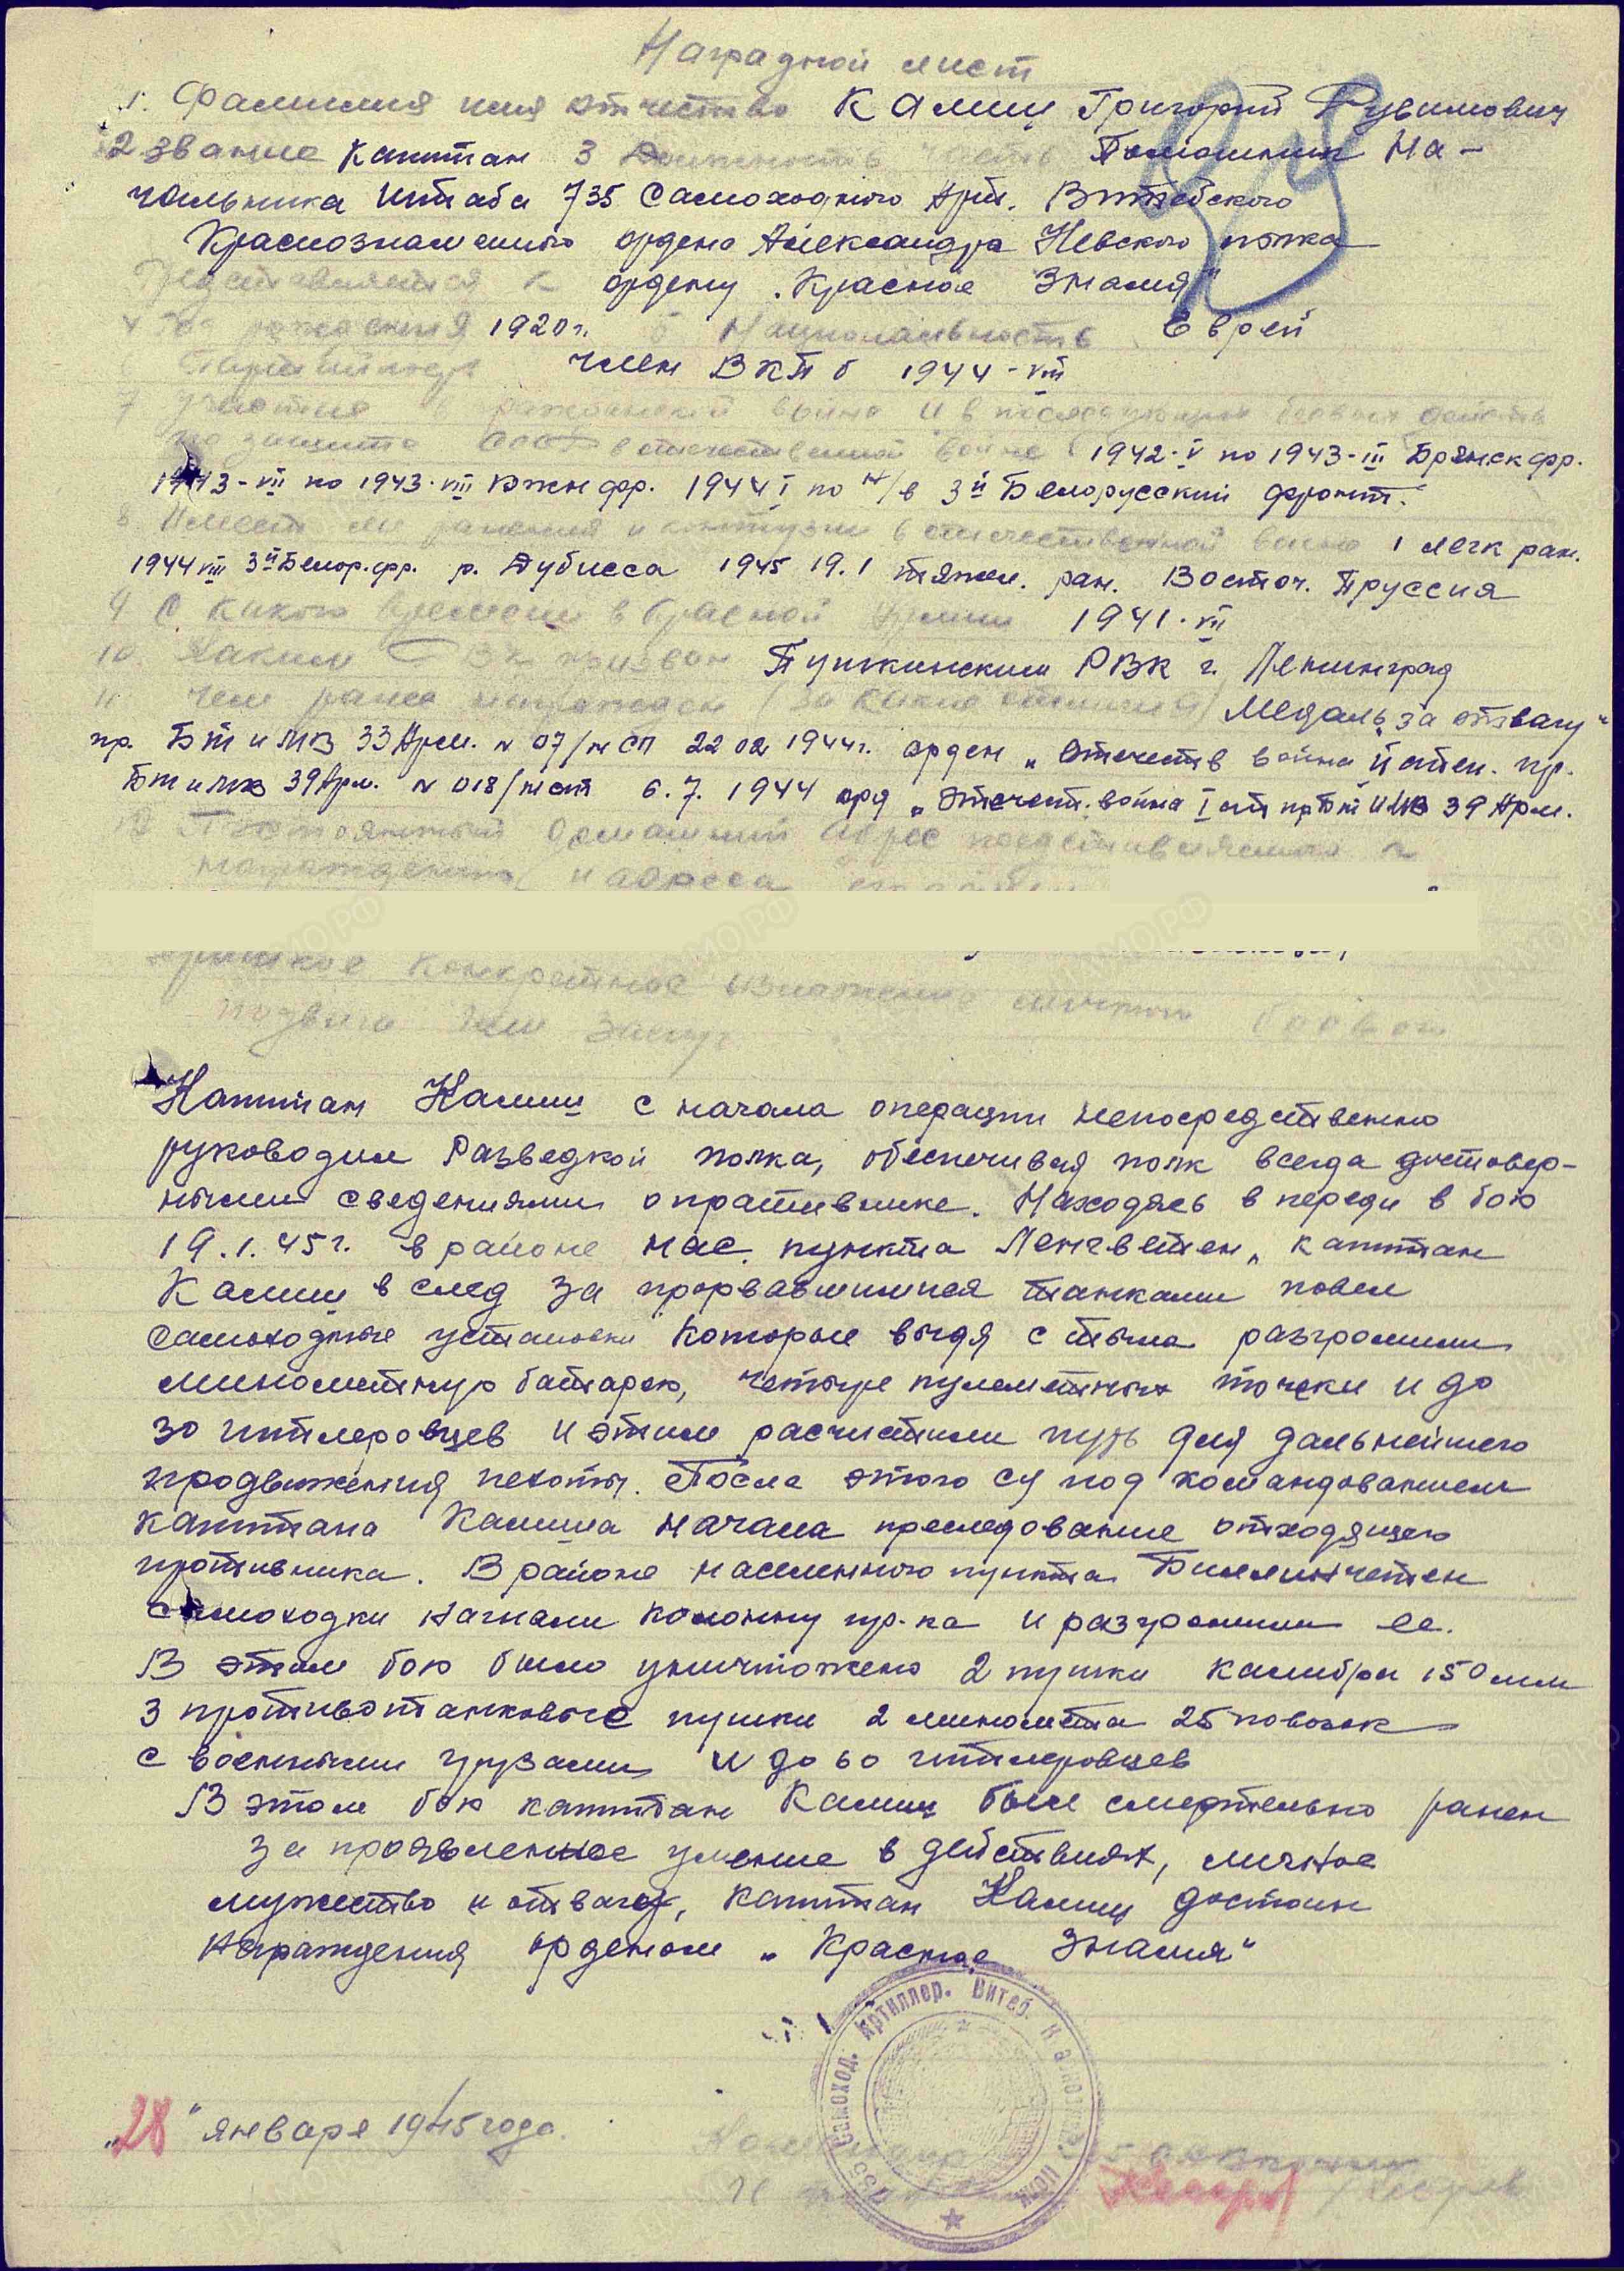 Наградной лист
1. Фамилия имя отчество Калищ Григорий Рувимович
2 звание Капитан 3 Должность часть Помошник На-
чальника Штаба 735 Самоходного Арт. Витебского
Краснознаменного ордена Александра Невского полка
Представляется к ордену „Красное Знамя"
4 Год рождения 1920 г. 5 Национальность Еврей
6 Партийность член ВКП б 1944-VIII
7 участие в гражданской войне и в последующих боевых действ
по защите СССР в отечественной войне 1942-V по 1943-III Брянск фр.
1943-VII по 1943-VIII Южн фр. 1944 I по н/в 3й Белорусский фронт.
8 Имеет ли ранения и контузии в отечественной войне 1 легк ран.
1944 VIII 3й Белор. фр. р. Дубисса 1945 19.1 тяжел. ран. Восточ. Пруссия
9 С какого времени в Красной Армии 1941-VII
10. Каким РВК призван Пушкинским РВК г. Ленинград
11 Чем ранее награжден (за какие отличия) Медаль „за отвагу"
пр. БТ и МВ 33 Арм. № 07/н СП 22 02 1944 г. орден „Отечеств война II степ. пр.
БТ и МВ 39 Арм. № 018/н 6.7.1944 орд „Отечест. война I ст пр БТ и МВ 39 Арм.
12 Постоянный домашний адрес представляемого к
награждению и адреса
Краткое конкретное изложение личного боевого
подвига или заслуг
Капитан Калиш с начала операции непосредственно
руководил Разведкой полка, обеспечивая полк всегда достовер-
ными сведениями о пративнике. Находясь в переди в бою
19.1.45 г. в районе нас. пункта Ленгветен, капитан
Калиш в след за прорвавшимися танками повел
самоходные установки которые выйдя с тыла разгромили
минометную батарею, четыре пулеметных точки и до
30 гитлеровцев и этим расчистили путь для дальнейшего
продвижения пехоты. После этого СУ под командованием
капитана Калиша начала преследование отходящего
противника. В районе населенного пункта
самоходки нагнали колонну пр-ка и разгромили ее.
В этом бою было уничтожено 2 пушки калибра 150 мм
3 противотанковые пушки 2 миномета 25 повозок
с военными грузами и до 60 гитлеровцев
В этом бою капитан Калищ был смертельно ранен
за проявленное умение в действиях, личное
мужество и отвагу, капитан Калищ достоин
награждения орденом „Красное Знамя"
735 Самоход. Артиллер. Витеб. Краснозн. полк
„28" января 1945 года.
Командир 735